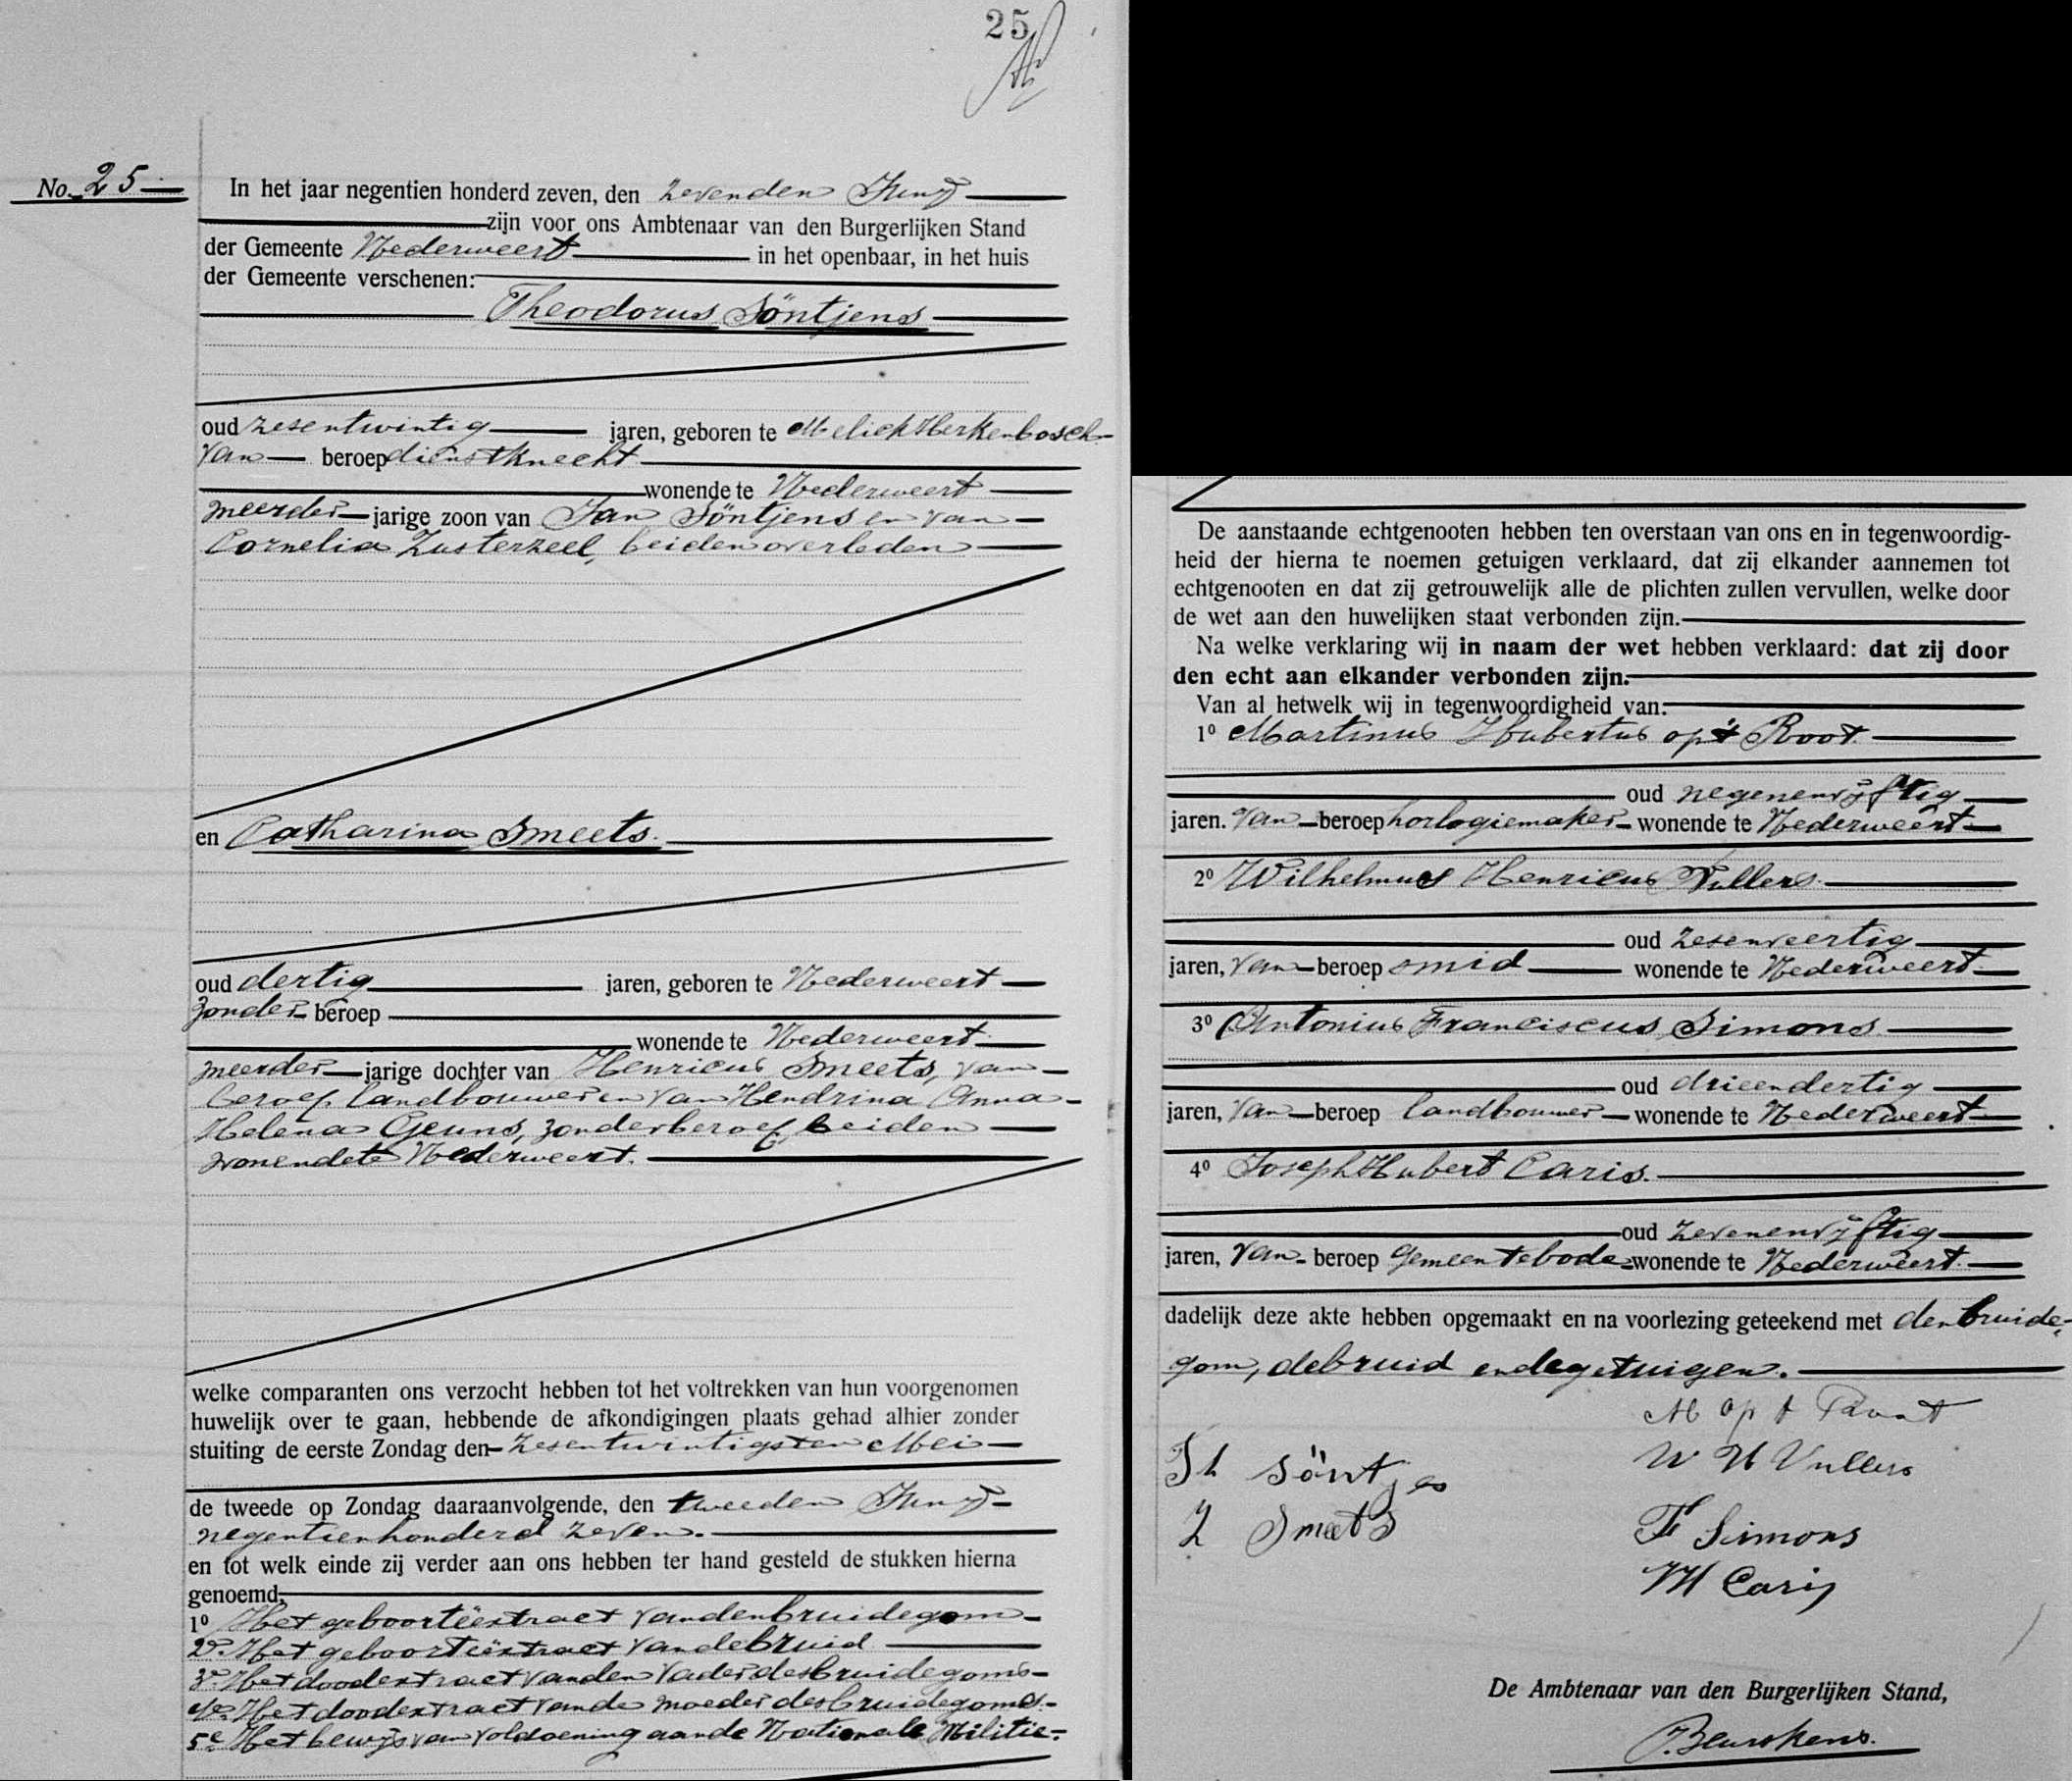 25
No. 25
In het jaar negentien honderd zeven, den zevenden Junij
zijn voor ons Ambtenaar van den Burgerlijken Stand
der Gemeente Nederweert in het openbaar, in het huis
der Gemeente verschenen:
Theodorus Söntjens
oud zesentwintig jaren, geboren te Melick Herkenbosch
van beroep dienstknecht
wonende te Nederweert
meerder jarige zoon van Jan Söntjens en van
Cornelia Zusterzeel, beiden overleden
en Catharina Smeets.
oud dertig jaren, geboren te Nederweert
zonder beroep
wonende te Nederweert
meerder jarige dochter van Henricus Smeets, van
beroep landbouwer en van Hendrina Anna
Helena Geuns, zonder beroep beiden
wonende te Nederweert.
welke comparanten ons verzocht hebben tot het voltrekken van hun voorgenomen
huwelijk over te gaan, hebbende de afkondigingen plaats gehad alhier zonder
stuiting de eerste Zondag den zesentwintigsten Mei
de tweede op Zondag daaraanvolgende, den tweeden Junij
negentienhonderd zeven.
en tot welk einde zij verder aan ons hebben ter hand gesteld de stukken hierna
genoemd,
1º Het geboorteëxtract van den bruidegom
2º. Het geboorteëxtract van de bruid
3º. Het doodextract van den vader des bruidegoms
4º. Het doodextract van de moeder des bruidegoms.
5º Het bewijs van voldoening aan de Nationale Militie.
De aanstaande echtgenooten hebben ten overstaan van ons en in tegenwoordig-
heid der hierna te noemen getuigen verklaard, dat zij elkander aannemen tot
echtgenooten en dat zij getrouwelijk alle de plichten zullen vervullen, welke door
de wet aan den huwelijken staat verbonden zijn.
Na welke verklaring wij in naam der wet hebben verklaard: dat zij door
den echt aan elkander verbonden zijn.
Van al hetwelk wij in tegenwoordigheid van:
1º Martinus Hubertus op 't Root.
oud negenenvijftig
jaren. van beroep horlogiemaker wonende te Nederweert
2º Wilhelmus Henricus Vullers.
oud zesenveertig
jaren, van beroep smid wonende te Nederweert.
3º Antonius Franciscus Simons
oud drieendertig
jaren, van beroep landbouwer wonende te Nederweert
4º Joseph Hubert Caris.
oud zevenenvijftig
jaren, van beroep gemeentebode wonende te Nederweert.
dadelijk deze akte hebben opgemaakt en na voorlezing geteekend met den bruide-
gom, de bruid en de getuigen.
M op t Root
Th Söntjes
W H Vullers
Smeets
F Simons
JH Caris
De Ambtenaar van den Burgerlijken Stand,
Beurskens.